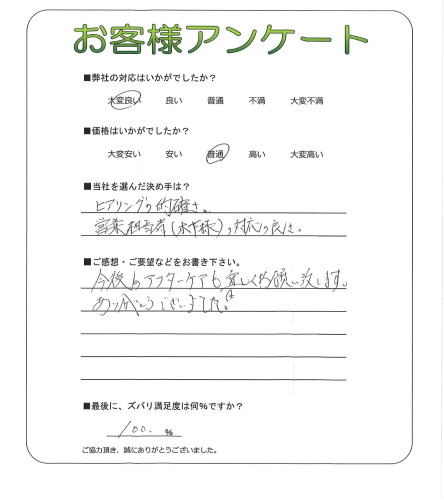 お客様アンケート
■弊社の対応はいかがでしたか？
大変良い 良い 普通 不満 大変不満
■価格はいかがでしたか？
大変安い 安い 普通 高い 大変高い
■当社を選んだ決め手は？
ヒアリングの的確さ。
営業担当者( 様)の対応の良さ。
■ご感想・ご要望などをお書き下さい。
今後のアフターケアも宜しくお願い致します。
ありがとうございました。
■最後に、ズバリ満足度は何%ですか？
100. %
ご協力頂き、誠にありがとうございました。